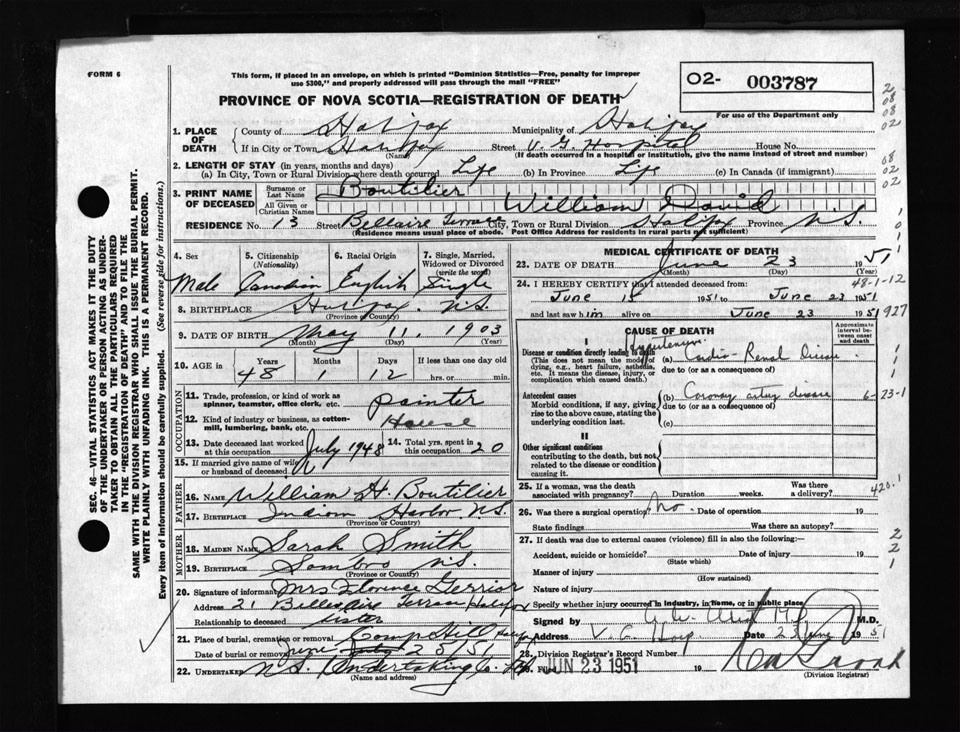 FORM 6
This form, if placed in an envelope, on which is printed "Dominion Statistics—Free, penalty for improper
use $300," and properly addressed will pass through the mail "FREE"
O2- 003787
PROVINCE OF NOVA SCOTIA—REGISTRATION OF DEATH
For use of the Department only
1. PLACE OF DEATH
County of Halifax Municipality of Halifax
If in City or Town Halifax Street V. G. Hospital House No.
(Name) (If death occurred in a hospital or institution, give the name instead of street and number)
2. LENGTH OF STAY (in years, months and days)
(a) In City, Town or Rural Division where death occurred Life (b) In Province Life (c) In Canada (if immigrant)
3. PRINT NAME OF DECEASED
Surname or Last Name Boutilier
All Given or Christian Names William David
RESIDENCE No. 13 Street Bellaire Terrace City, Town or Rural Division Halifax Province N.S.
(Residence means usual place of abode. Post Office Address for residents in rural parts not sufficient)
4. Sex 5. Citizenship (Nationality) 6. Racial Origin 7. Single, Married, Widowed or Divorced (write the word)
Male Canadian English Single
8. BIRTHPLACE Halifax N.S.
(Province or Country)
9. DATE OF BIRTH May 11, 1903
(Month) (Day) (Year)
10. AGE in Years Months Days If less than one day old
48 1 2 hrs. or min.
OCCUPATION
11. Trade, profession, or kind of work as spinner, teamster, office clerk, etc. painter
12. Kind of industry or business, as cotton-mill, lumbering, bank, etc. House
13. Date deceased last worked at this occupation July 1948 14. Total yrs. spent in this occupation 20
15. If married give name of wife or husband of deceased
FATHER
16. NAME William H. Boutilier
17. BIRTHPLACE Indian Harbor N.S.
(Province or Country)
MOTHER
18. MAIDEN NAME Sarah Smith
19. BIRTHPLACE Sambro N.S.
(Province or Country)
20. Signature of informant Mrs Florence Gerrior
Address 21 Bellaire Terrace Halifax
Relationship to deceased sister
21. Place of burial, cremation or removal Camp Hill Halifax
Date of burial or removal June 25/51
22. UNDERTAKER N.S. Undertaking Co.
(Name and address)
MEDICAL CERTIFICATE OF DEATH
23. DATE OF DEATH June 23 1951
(Month) (Day) (Year)
48-1-12
24. I HEREBY CERTIFY that I attended deceased from:
June 15 1951 to June 23 1951
and last saw him alive on June 23 1951
927
CAUSE OF DEATH
Approximate interval between onset and death
I
Disease or condition directly leading to death
(This does not mean the mode of dying, e.g., heart failure, asthenia, etc. It means the disease, injury, or complication which caused death.)
Hypertensive
(a) Cardio-Renal Disease
due to (or as a consequence of)
Antecedent causes
Morbid conditions, if any, giving rise to the above cause, stating the underlying condition last.
(b) Coronary artery disease 6-23-1
due to (or as a consequence of)
(c)
II
Other significant conditions
contributing to the death, but not related to the disease or condition causing it.
25. If a woman, was the death associated with pregnancy? Duration weeks. Was there a delivery?
420.1
26. Was there a surgical operation? No. Date of operation 19
State findings Was there an autopsy?
27. If death was due to external causes (violence) fill in also the following:—
Accident, suicide or homicide? Date of injury 19
(State which)
Manner of injury
(How sustained)
Nature of injury
Specify whether injury occurred in industry, in home, or in public place
Signed by M.D.
Address V. G. Hosp Date 23 June 1951
28. Division Registrar's Record Number
29. Filed JUN 23 1951 19
(Division Registrar)
SEC. 46—VITAL STATISTICS ACT MAKES IT THE DUTY
OF THE UNDERTAKER OR PERSON ACTING AS UNDER-
TAKER TO OBTAIN ALL THE PARTICULARS REQUIRED
IN THE "REGISTRATION OF DEATH" AND TO FILE THE
SAME WITH THE DIVISION REGISTRAR WHO SHALL ISSUE THE BURIAL PERMIT.
WRITE PLAINLY WITH UNFADING INK. THIS IS A PERMANENT RECORD.
Every item of information should be carefully supplied. (See reverse side for instructions.)